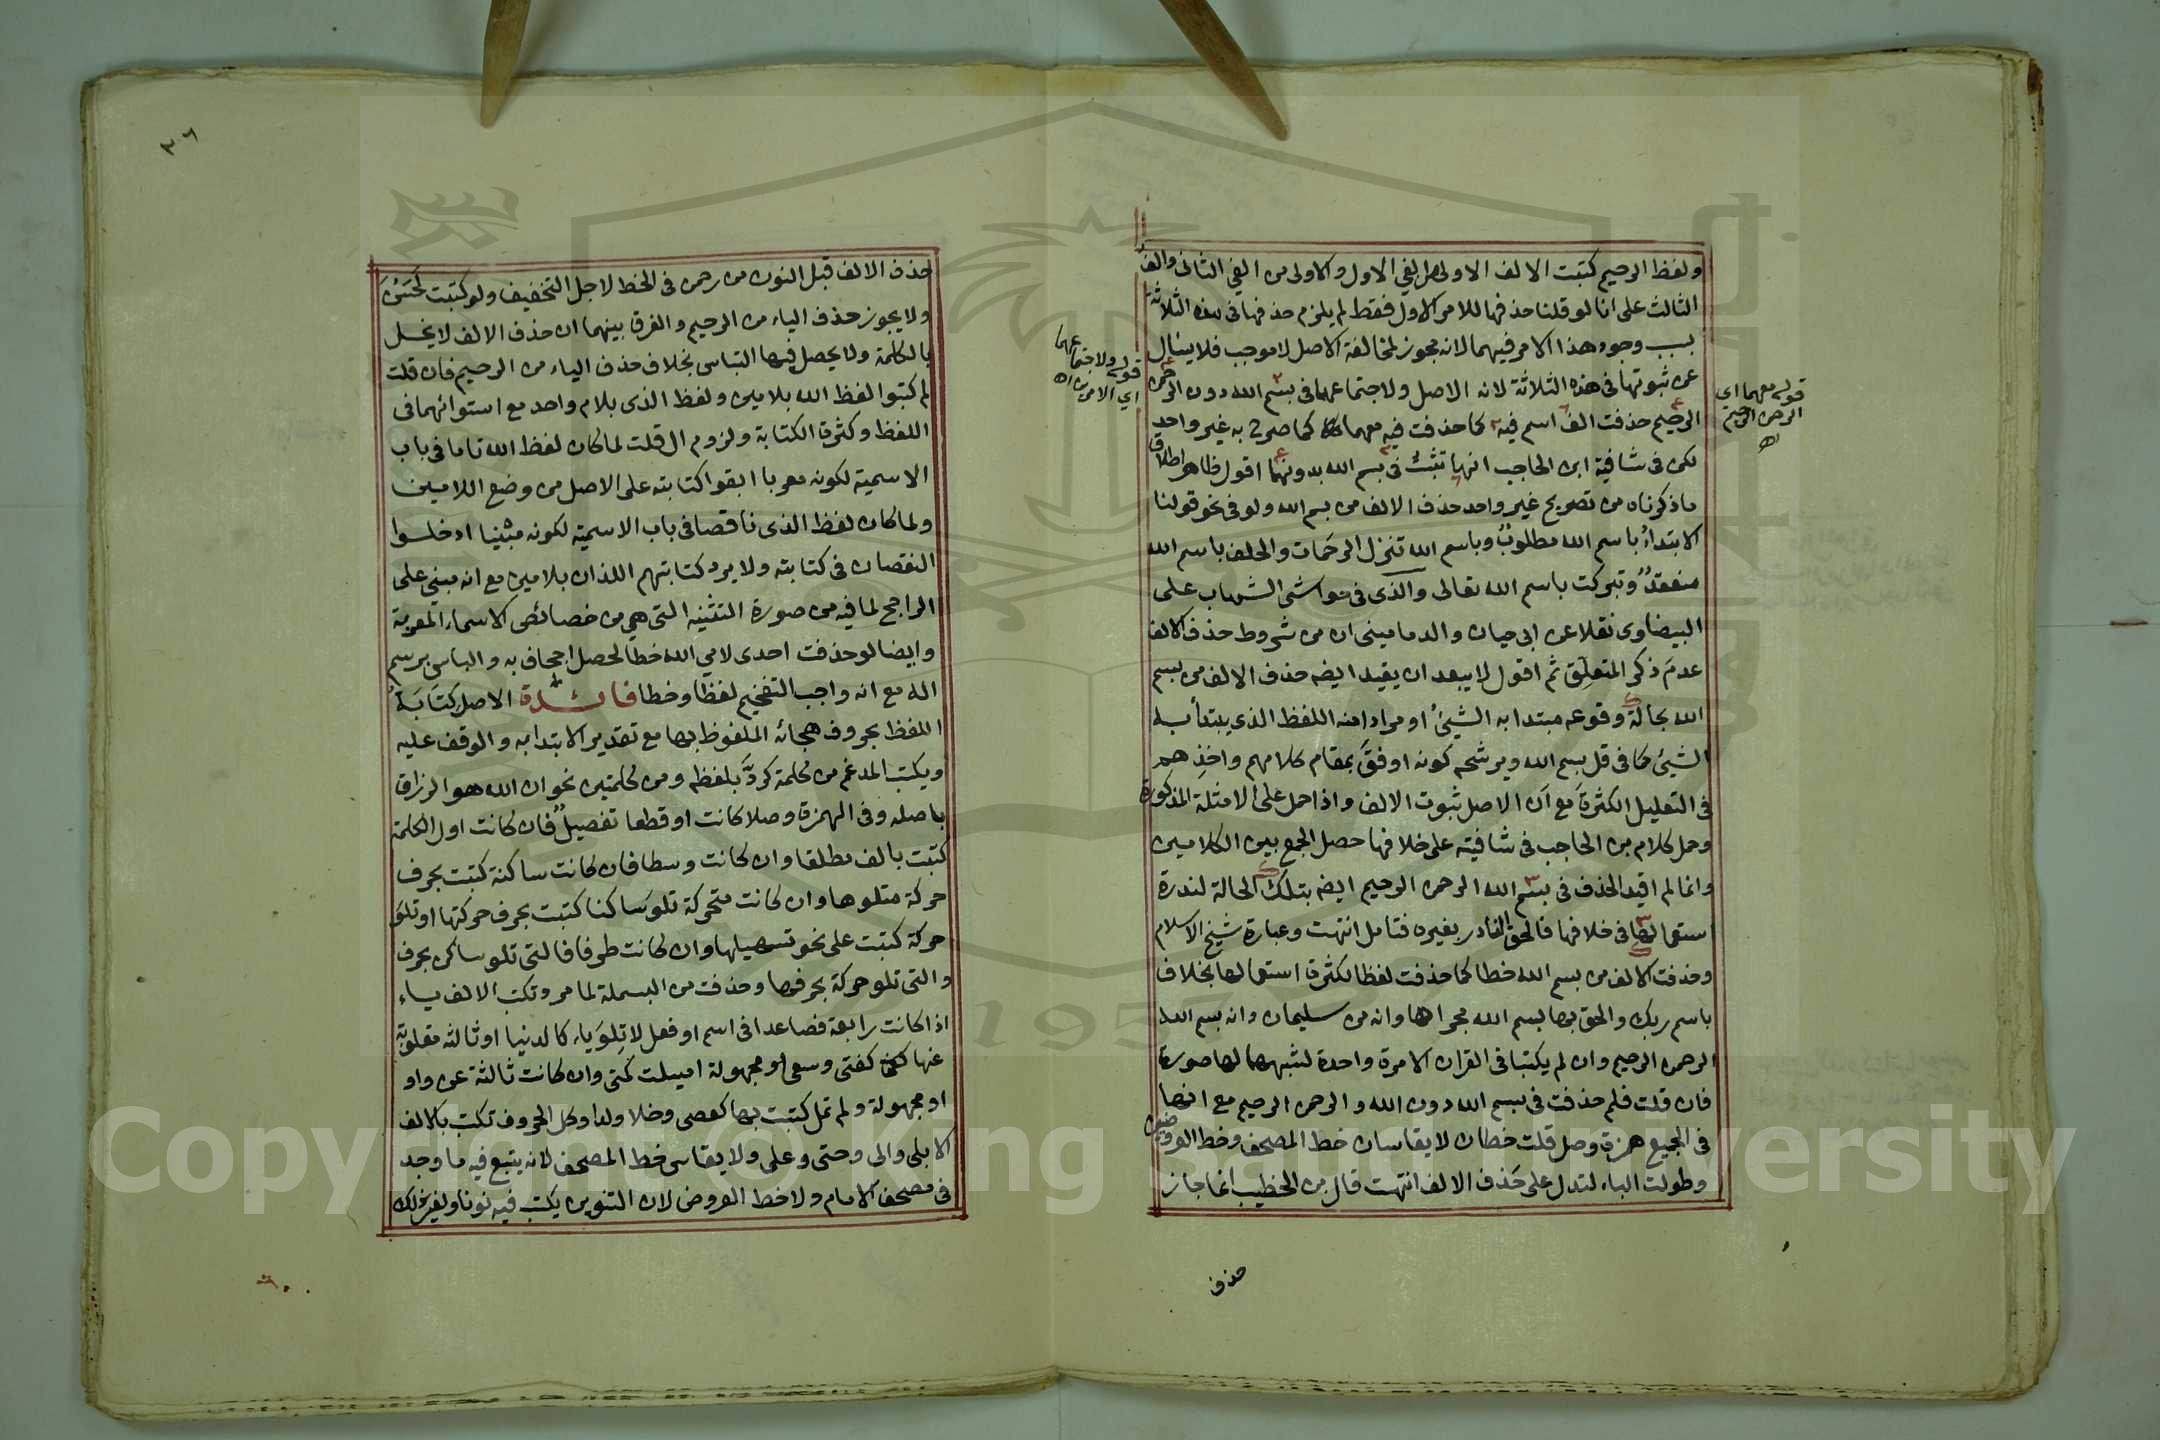 ولفظ الرحيم كتبت الالف الاولى من الفي الاول والاولى من الفي الثاني والف
الثالث على انا لو قلنا حذفها للامر الاول فقط لم يلزم حذفها في هذه الثلاثة
بسبب وجود هذا الامر فيهما لانه مجوز لمخالفة الاصل لا موجب فلا يسال
عن ثبوتها في هذه الثلاثة لانه الاصل ولاجتماعهما في بسم الله دون الرحمن
الرحيم حذفت الف اسم فيه كما حذفت فيه معهما كما صرح به غير واحد
لكن في شافية ابن الحاجب انها تثبت في بسم الله بدونهما اقول ظاهر اطلاق
ما ذكرناه من تصريح غير واحد حذف الالف من بسم الله ولو في نحو قولنا
الابتداء باسم الله مطلوب وباسم الله تنزل الرحمات والحلف باسم الله
منعقد وتبركت باسم الله تعالى والذي في حواشي الشهاب على
البيضاوي نقلا عن ابي حيان والدماميني ان من شروط حذف الالف
عدم ذكر المتعلق ثم اقول لا يبعد ان يقيد ايضه حذف الالف من بسم
الله بحالة وقوعه مبتدا به الشيء او مرادا منه اللفظ الذي يبتدأ به
الشيء كما في قل بسم الله ويرشحه كونه اوفق بمقام كلامهم واخذهم
في التعليل الكثرة مع ان الاصل ثبوت الالف واذا حمل على الامثلة المذكورة
وحمل كلام بن الحاجب في شافيته على خلافها حصل الجمع بين الكلامين
وانما لم اقيد الحذف في بسم الله الرحمن الرحيم ايضه بتلك الحالة لندرة
استعمالها في خلافها فالحق النادر بغيره فتامل انتهت وعبارة شيخ الاسلام
وحذفت الالف من بسم الله خطا كما حذفت لفظا لكثرة استعمالها بخلاف
باسم ربك والحق بها بسم الله مجراها وانه من سليمان وانه بسم الله
الرحمن الرحيم وان لم يكتبا في القران الا مرة واحدة لشبههما لها صورة
فان قلت فلم حذفت في بسم الله دون الله والرحمن الرحيم مع انها
في الجميع همزة وصل قلت خطان لا يقاسان خط المصحف وخط العروضيين
وطولت الباء لتدل على حذف الالف انتهت قال بن الخطيب انما جاز
قوله معهما اي
الرحمن الرحيم
اه
قوله ولاجتماعهما
اي الامرين اه
حذف
٣٦
حذف الالف قبل النون من رحمن في الخط لاجل التخفيف ولو كتبت لحسن
ولا يجوز حذف الياء من الرحيم والفرق بينهما ان حذف الالف لا يخل
بالكلمة ولا يحصل فيها التباس بخلاف حذف الياء من الرحيم فان قلت
لم كتبوا لفظ الله بلامين ولفظ الذي بلام واحد مع استوائهما في
اللفظ وكثرة الكتابة ولزوم ال قلت لما كان لفظ الله تاما في باب
الاسمية لكونه معربا ابقوا كتابته على الاصل من وضع اللامين
ولما كان لفظ الذي ناقصا في باب الاسمية لكونه مبنيا ادخلوا
النقصان في كتابته ولا يرد كتابتهم اللذان بلامين مع انه مبني على
الراجح لما فيه من صورة التثنيه التي هي من خصائص الاسماء المعربة
وايضا لو حذفت احدى لامي الله خطا لحصل اجحاف به والباس برسم
اله مع انه واجب التفخيم لفظا وخطا فائدة الاصل كتابة
اللفظ بحروف هجائه الملفوظ بها مع تقدير الابتدا به والوقف عليه
ويكتب المدغم من كلمة كردّ بلفظه ومن كلمتين نحو ان الله هو الرزاق
باصله وفي الهمزة وصلا كانت او قطعا تفصيل فان كانت اول الكلمة
كتبت بالف مطلقا وان كانت وسطا فان كانت ساكنة كتبت بحرف
حركة متلوها وان كانت متحركة تلو ساكنا كتبت بحرف حركتها او تلو
حركة كتبت على نحو تسهيلها وان كانت طرفا فالتي تلو ساكن بحرف
والتي تلو حركة بحرفها وحذفت من البسملة لما مر وتكتب الالف ياء
اذا كانت رابعة فصاعدا في اسم او فعل لا تلو ياء كالدنيا او ثالثه مقلوبة
عنها كفتى وسعى او مجهولة اميلت كمتى وان كانت ثالثة عن واو
او مجهولة ولم تمل كتبت بها كعصى وخلا ولدا وكل الحروف تكتب بالالف
الا بلى والى وحتى وعلى ولا يقاس خط المصحف لانه يتبع فيه ما وجد
في مصحف الامام ولا خط العروض لان التنوين يكتب فيه نونا ولغير ذلك
Copyright © King Saud University
1957